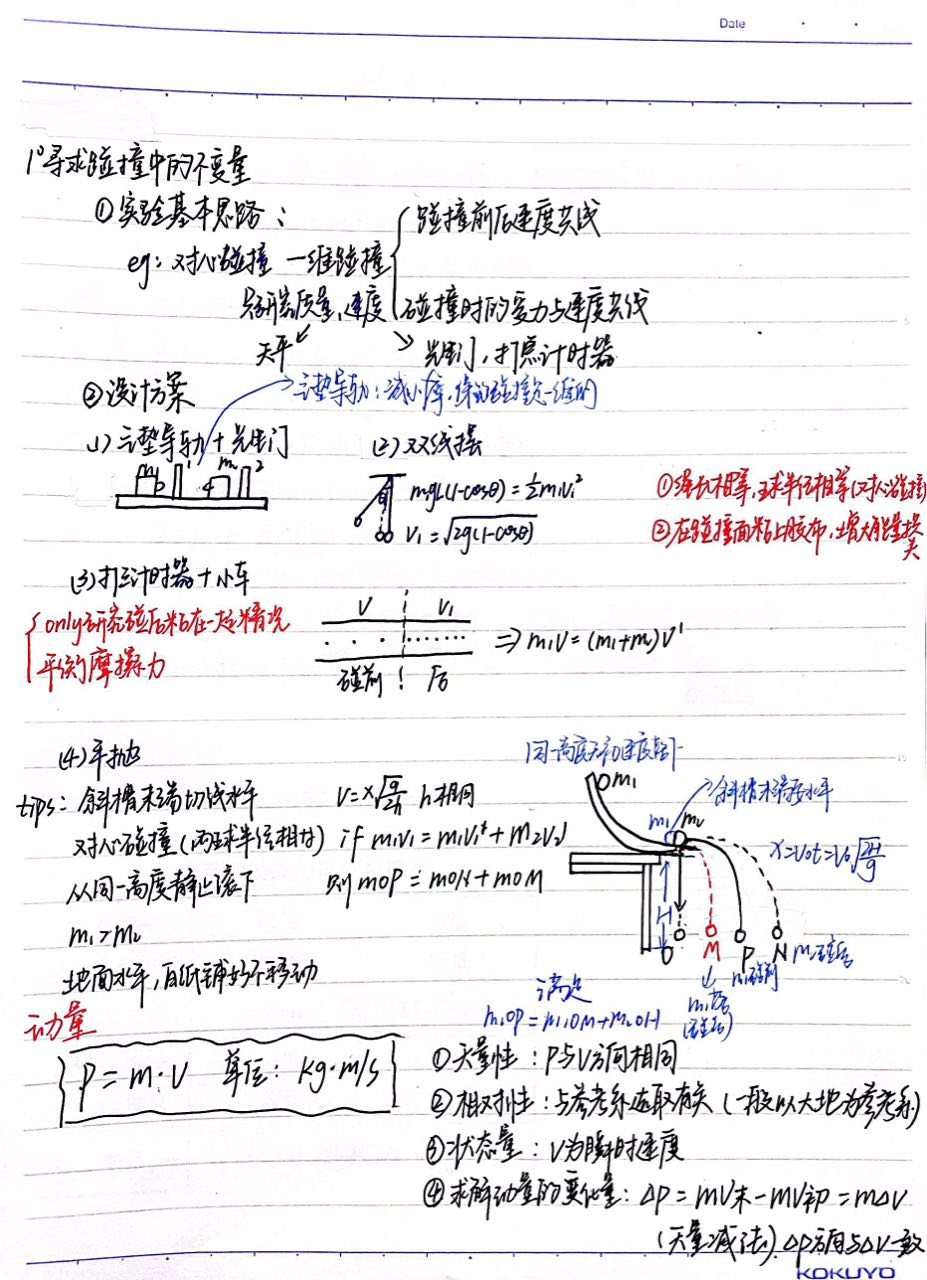 Date
1° 寻求碰撞中的不变量
① 实验基本思路：
碰撞前后速度共线
eg：对心碰撞 一维碰撞
只研究质量，速度
碰撞时的受力与速度共线
天平
光电门，打点计时器
② 设计方案
气垫导轨：减小摩擦，保证碰撞是一维的
(1) 气垫导轨＋光电门
m₁ 1 m₂ 2
(2) 双线摆
mgL(1-cosθ)=½m₁v₁²
V₁=√2g(1-cosθ)
① 绳长相等，球半径相等(对心碰撞)
② 在碰撞面粘上胶布，增大能量损失
(3) 打点计时器＋小车
only研究碰后粘在一起情况
平衡摩擦力
V V₁
碰前 后
⇒ m₁V=(m₁+m₂)V'
(4) 平抛
tips：斜槽末端切线水平
对心碰撞(两球半径相等)
从同一高度静止滚下
m₁>m₂
地面水平，白纸铺好不移动
V=x√g/2H h相同
if m₁V₁=m₁V₁'+m₂V₂'
则 mOP=mON+mOM
同一高度
m₁
斜槽末端要水平
m₁ m₂
x=V₀t=V₀√2H/g
H
O M P N
m₂碰后
m₁碰前
m₁碰后
满足
m₁OP=m₁OM+m₂ON
动量
P=m·V 单位：kg·m/s
① 矢量性：P与V方向相同
② 相对性：与参考系选取有关(一般以大地为参考系)
③ 状态量：V为瞬时速度
④ 求解动量的变化量：ΔP=mV末-mV初=mΔV
(矢量减法)．ΔP方向与ΔV一致
KOKUYO